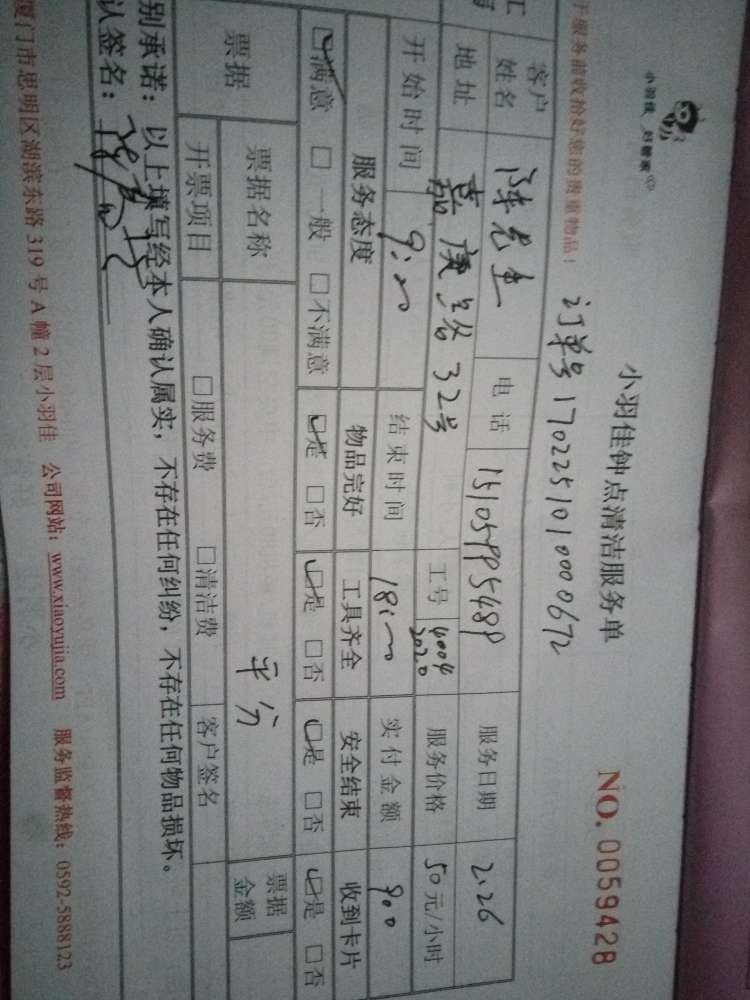 小羽佳 好管家
于服务前收拾好您的贵重物品！
小羽佳钟点清洁服务单
NO. 0059428
订单号 170225101000672
客户姓名 陈先生 电话 15105995489 服务日期 2.26
地址 32号 工号 4004 2020 服务价格 50元/小时
开始时间 结束时间 实付金额 900
服务态度 物品完好 工具齐全 安全结束 收到卡片
☑满意 □一般 □不满意 ☑是 □否 ☑是 □否 ☑是 □否 ☑是 □否
票据 票据名称 平分 票据金额
开票项目 □服务费 □清洁费 客户签名
别承诺：以上填写经本人确认属实，不存在任何纠纷，不存在任何物品损坏。
认签名：
厦门市思明区湖滨东路 319 号 A 幢 2 层小羽佳 公司网站：www.xiaoyujia.com 服务监督热线：0592-5888123